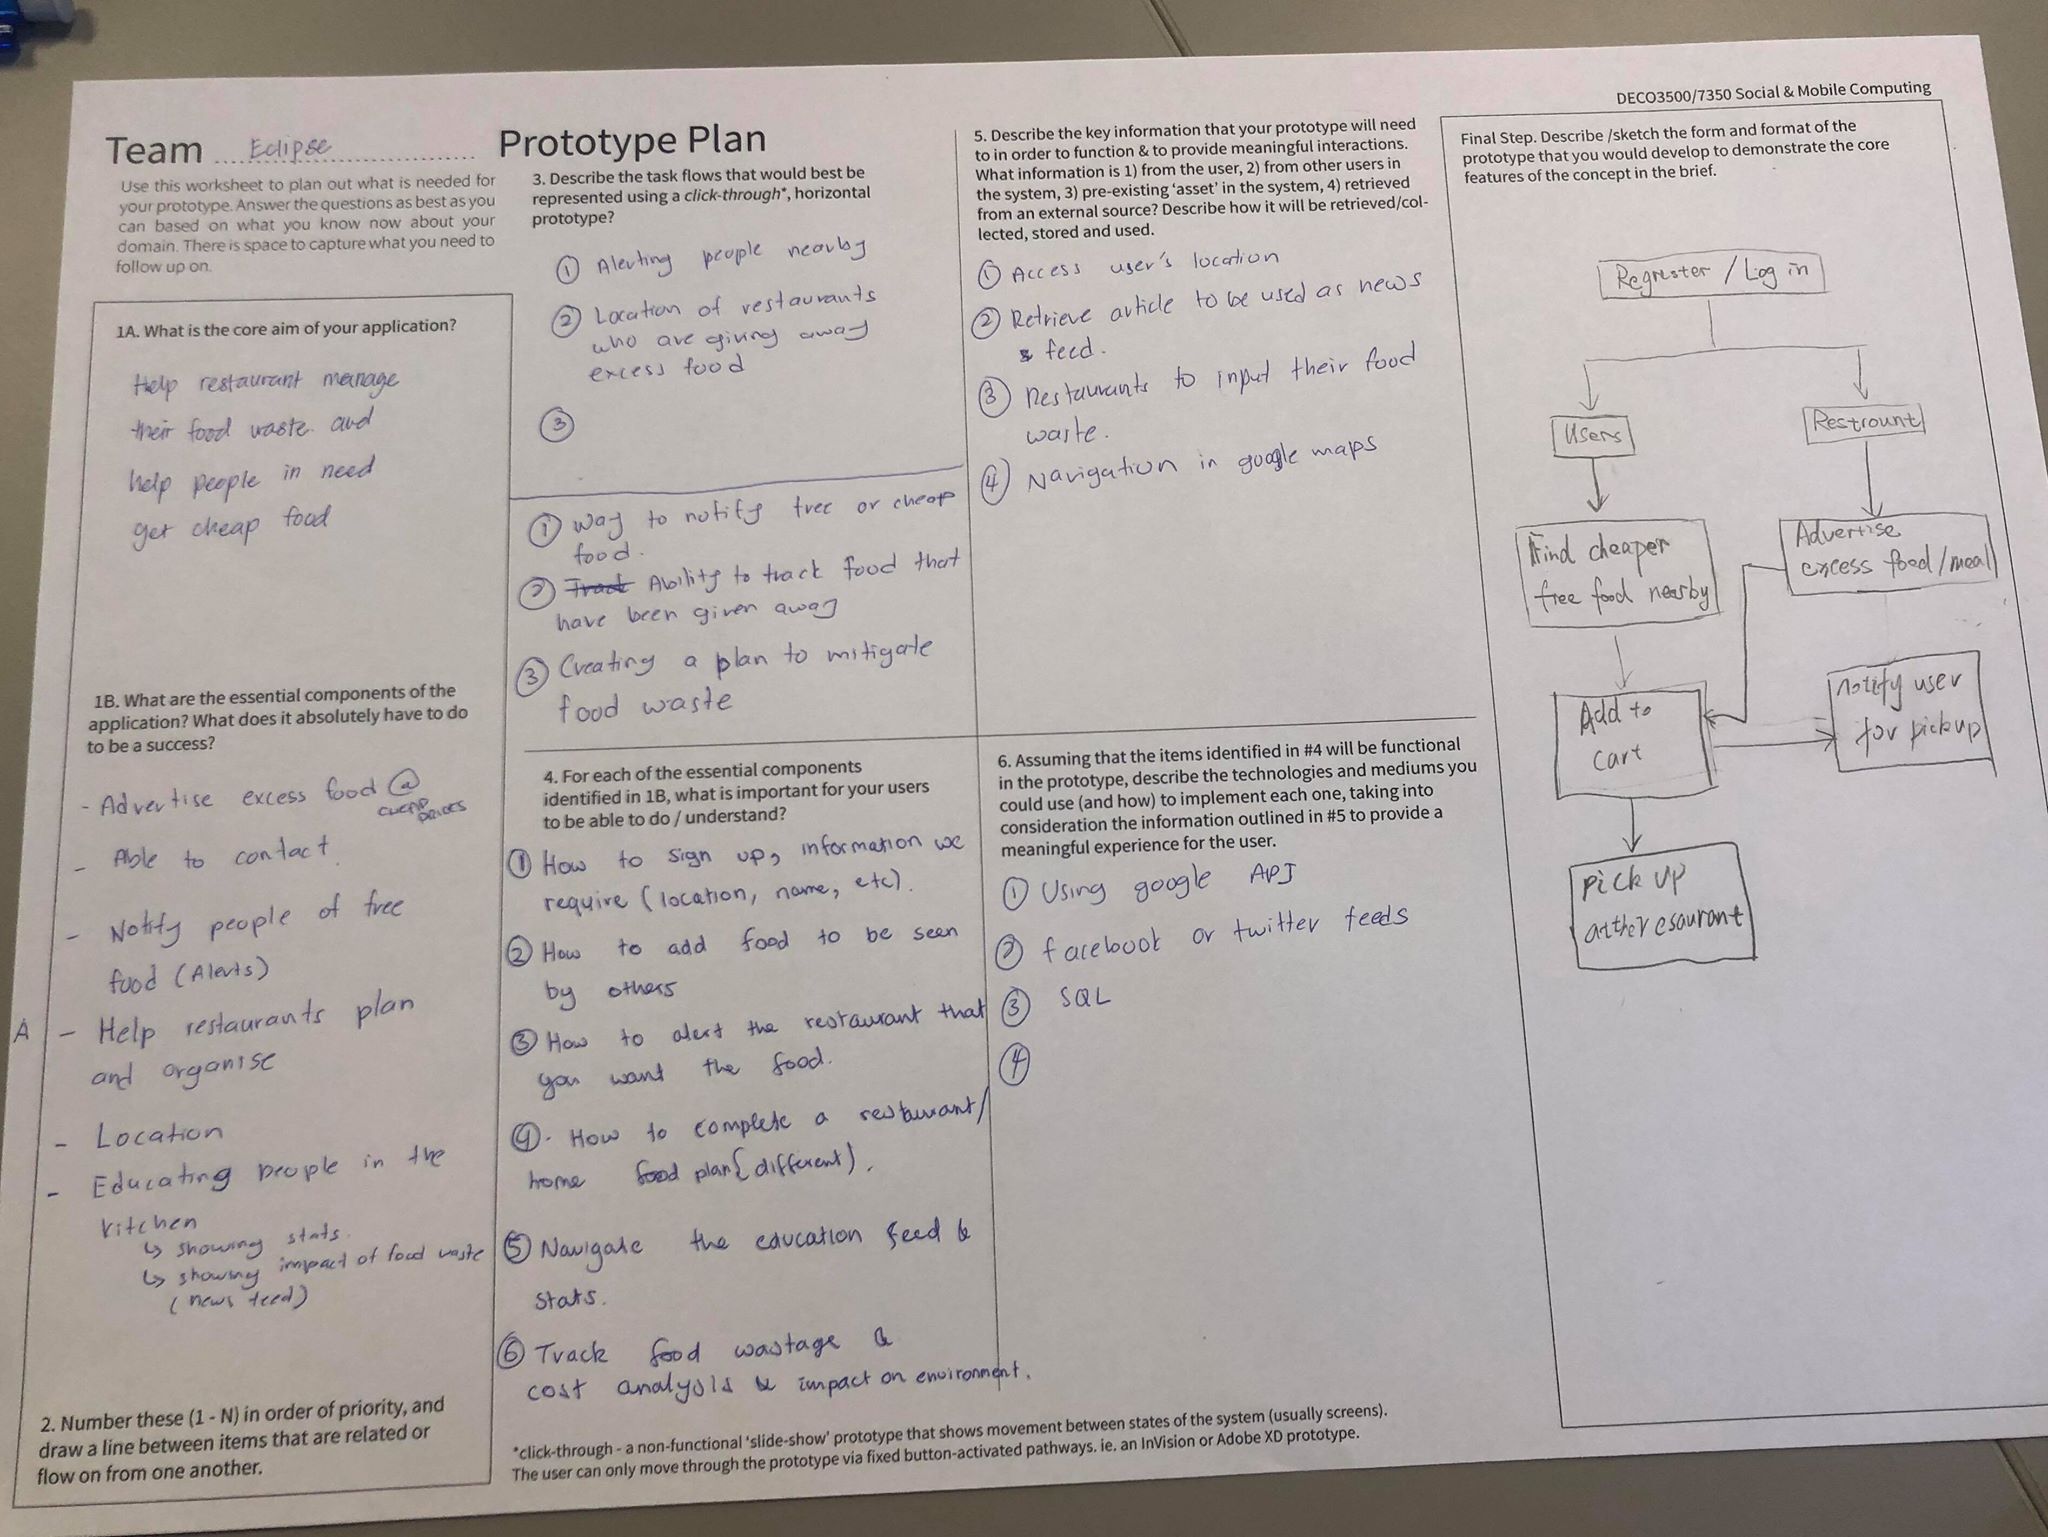 DECO3500/7350 Social & Mobile Computing
Team Eclipse
Prototype Plan
Use this worksheet to plan out what is needed for
your prototype. Answer the questions as best as you
can based on what you know now about your
domain. There is space to capture what you need to
follow up on.
1A. What is the core aim of your application?
Help restaurant manage
their food waste and
help people in need
get cheap food
1B. What are the essential components of the
application? What does it absolutely have to do
to be a success?
- Advertise excess food @
cheap
prices
- Able to contact
- Notify people of free
food (Alerts)
A - Help restaurants plan
and organise
- Location
- Educating people in the
kitchen
↳ showing stats.
↳ showing impact of food waste
(news feed)
2. Number these (1 - N) in order of priority, and
draw a line between items that are related or
flow on from one another.
3. Describe the task flows that would best be
represented using a click-through*, horizontal
prototype?
① Alerting people nearby
② Location of restaurants
who are giving away
excess food
③
① Way to notify free or cheap
food.
② Track Ability to track food that
have been given away
③ Creating a plan to mitigate
food waste
4. For each of the essential components
identified in 1B, what is important for your users
to be able to do / understand?
① How to sign up, information we
require (location, name, etc).
② How to add food to be seen
by others
③ How to alert the restaurant that
you want the food.
④. How to complete a restaurant/
home food plan (different).
⑤ Navigate the education feed &
stats.
⑥ Track food wastage &
cost analysis & impact on environment.
*click-through - a non-functional 'slide-show' prototype that shows movement between states of the system (usually screens).
The user can only move through the prototype via fixed button-activated pathways. ie. an InVision or Adobe XD prototype.
5. Describe the key information that your prototype will need
to in order to function & to provide meaningful interactions.
What information is 1) from the user, 2) from other users in
the system, 3) pre-existing 'asset' in the system, 4) retrieved
from an external source? Describe how it will be retrieved/col-
lected, stored and used.
① Access user's location
② Retrieve article to be used as news
feed.
③ Restaurants to input their food
waste.
④ Navigation in google maps
6. Assuming that the items identified in #4 will be functional
in the prototype, describe the technologies and mediums you
could use (and how) to implement each one, taking into
consideration the information outlined in #5 to provide a
meaningful experience for the user.
① Using google API
② facebook or twitter feeds
③ SQL
④
Final Step. Describe /sketch the form and format of the
prototype that you would develop to demonstrate the core
features of the concept in the brief.
Regrister / Log in
Users
Restrount
Find cheaper
free food nearby
Advertise
excess food/meal
Add to
cart
notify user
for pickup
pick up
atther esaurant